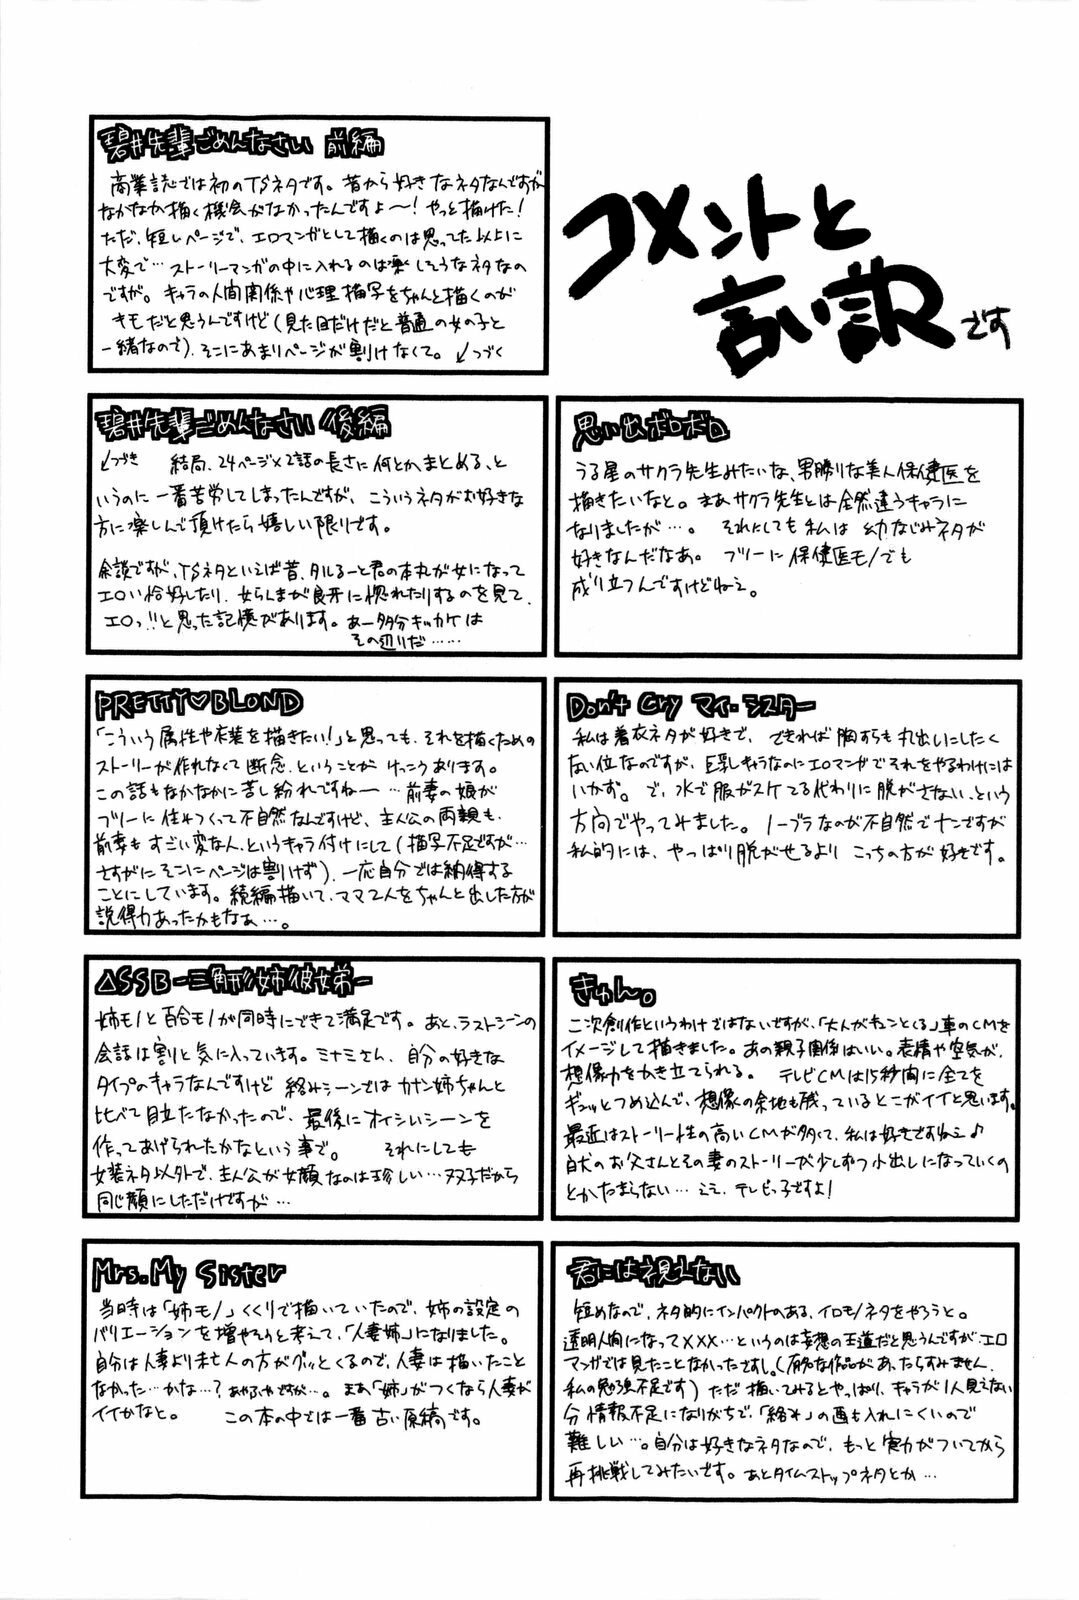 コメントと
言い訳です
碧井先輩ごめんなさい 前編
商業誌では初のTSネタです。昔から好きなネタなんですが
なかなか描く機会がなかったんですよ〜！やっと描けた！
ただ、短いページで、エロマンガとして描くのは思ってた以上に
大変で…ストーリーマンガの中に入れるのは楽しそうなネタなの
ですが。キャラの人間関係や心理描写をちゃんと描くのが
キモだと思うんですけど（見た目だけだと普通の女の子と
一緒なので）、そこにあまりページが割けなくて。↙つづく
碧井先輩ごめんなさい 後編
↙つづき 結局、24ページ×2話の長さに何とかまとめる、と
いうのに一番苦労してしまったんですが、こういうネタがお好きな
方に楽しんで頂けたら嬉しい限りです。
余談ですが、TSネタといえば昔、タルるートと君の本丸が女になって
エロい恰好したり、女らんまが良牙に惚れたりするのを見て、
エロっ!!と思った記憶があります。あー多分キッカケは
その辺りだ……
思い出ボロボロ
うる星のサクラ先生みたいな、男勝りな美人保健医を
描きたいなと。まあサクラ先生とは全然違うキャラに
なりましたが…。それにしても私は幼なじみネタが
好きなんだなあ。フツーに保健医モノでも
成り立つんですけどねェ。
PRETTY♡BLOND
「こういう属性や衣装を描きたい！」と思っても、それを描くための
ストーリーが作れなくて断念、ということがけっこうあります。
この話もなかなかに苦し紛れですね〜…前妻の娘が
フツーに住みつくって不自然なんですけど、主人公の両親も
前妻もすごい変な人、というキャラ付けにして（描写不足ですが…
さすがにそこにページは割けず）、一応自分では納得する
ことにしています。続編描いて、ママ2人をちゃんと出した方が
説得力あったかもなぁ…。
Don't Cry マイ・シスター
私は着衣ネタが好きで、できれば胸すらも丸出しにしたく
ない位なのですが、巨乳キャラなのにエロマンガでそれをやるわけには
いかず。で、水で服がスケてる代わりに脱がさない、という
方向でやってみました。ノーブラなのが不自然でナンですが
私的には、やっぱり脱がせるよりこっちの方が好きです。
△SSB-三角形姉彼女弟-
姉モノと百合モノが同時にできて満足です。あと、ラストシーンの
会話は割と気に入っています。ミナミさん、自分の好きな
タイプのキャラなんですけど絡みシーンではカナン姉ちゃんと
比べて目立たなかったので、最後にオイシいシーンを
作ってあげられたかなという事で。それにしても
女装ネタ以外で、主人公が女顔なのは珍しい…双子だから
同じ顔にしただけですが…
きゅん。
二次創作というわけではないですが、「大人がキュンとくる」車のCMを
イメージして描きました。あの親子関係はいい。表情や空気が、
想像力をかき立てられる。テレビCMは15秒間に全てを
ギュッとつめ込んで、想像の余地も残っているとこがイイと思います。
最近はストーリー性の高いCMが多くて、私は好きですねェ♪
白犬のお父さんとその妻のストーリーが少しずつ小出しになっていくの
とかたまらない…ええ、テレビっ子ですよ！
Mrs. My Sister
当時は「姉モノ」くくりで描いていたので、姉の設定の
バリエーションを増やそうと考えて、「人妻姉」になりました。
自分は人妻より未亡人の方がグッとくるので、人妻は描いたこと
なかった…かな…？あやふやですが…。まあ「姉」がつくなら人妻が
イイかなと。この本の中では一番古い原稿です。
君には視えない
短めなので、ネタ的にインパクトのある、イロモノネタをやろうと。
透明人間になって×××…というのは妄想の王道だと思うんですが、エロ
マンガでは見たことなかったですし。（有名な作品があったらすみません、
私の勉強不足です）ただ描いてみるとやっぱり、キャラが1人見えない
分情報不足になりがちで、「絡み」の画も入れにくいので
難しい…。自分は好きなネタなので、もっと実力がついてから
再挑戦してみたいです。あとタイムストップネタとか…